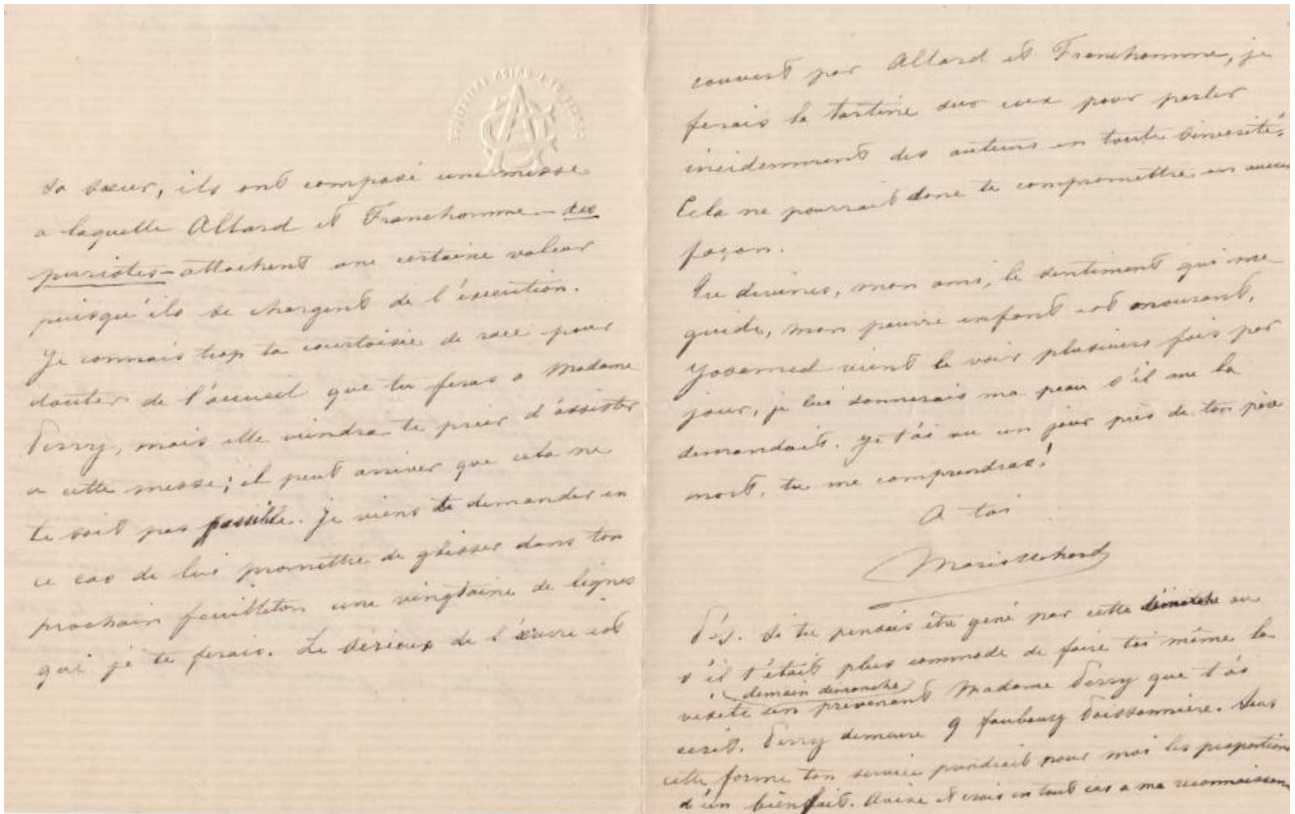 sa sœur, ils ont composé une messe
a laquelle Allard et Franchomme – des
puristes – attachent une certaine valeur
puisqu'ils se chargent de l'exécution.
Je connais trop ta courtoisie de race pour
douter de l'accueil que tu feras a Madame
Perry, mais elle viendra te prier d'assister
a cette messe; il peut arriver que cela ne
te soit pas possible. Je viens te demander en
ce cas de lui promettre de glisser dans ton
prochain feuilleton une vingtaine de lignes
que je te ferais. Le sérieux de l'œuvre est
couvert par Allard et Franchomme, je
ferais la tartine sur eux pour parler
incidemment des auteurs en toute
Cela ne pourrait donc te compromettre en aucune
façon.
Tu devines, mon ami, le sentiment qui me
guide, mon pauvre enfant est mourant,
vient le voir plusieurs fois par
jour, je lui donnerais ma peau s'il me la
demandait. Je t'ai vu un jour près de ton père
mort, tu me comprendras!
A toi
P.S. Si tu pensais être gêné par cette ou
s'il t'était plus commode de faire toi même la
demain dimanche
visite en prévenant Madame Perry que t'as
écrit. Perry demeure 9 faubourg Poissonnière. Sous
cette forme ton service prendrait pour moi les proportions
d'un bienfait. Avise et crois en tout cas a ma reconnaissance